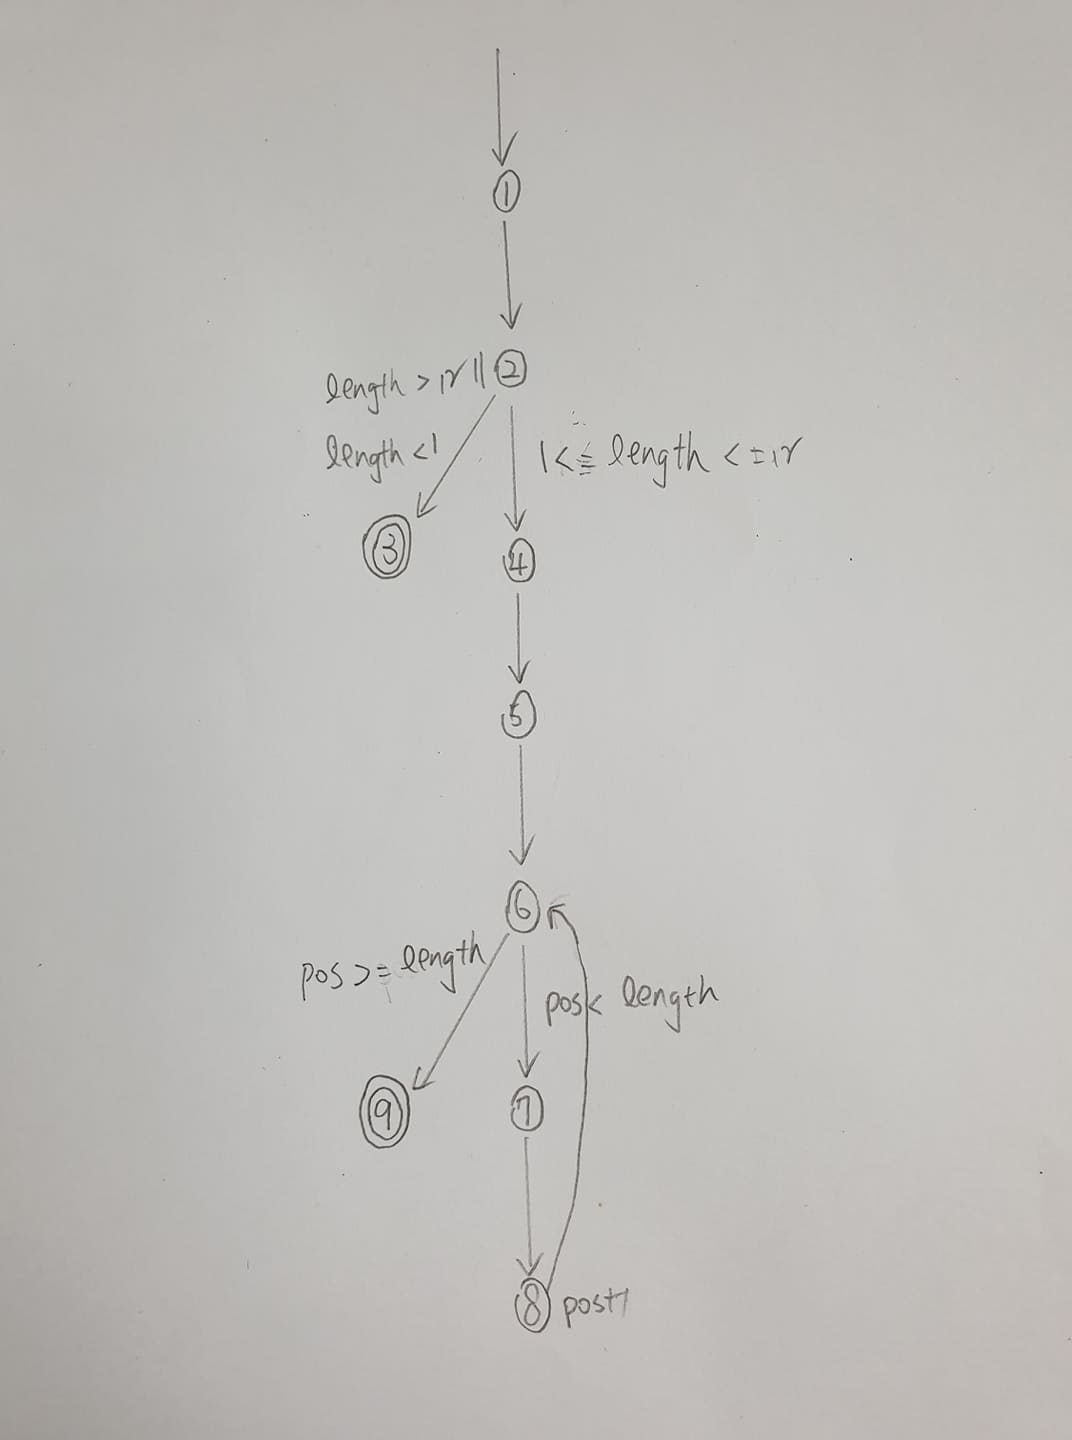 ①
②
length > 12 ||
length < 1
1 <= length <= 12
③
④
⑤
⑥
pos >= length
pos < length
⑨
⑦
⑧ pos+1